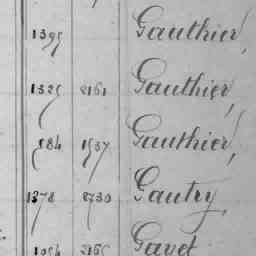 1395 Gauthier,
1325 2161 Gauthier,
584 1537 Gauthier,
1378 2730 Gautry,
1054 2165 Gavet